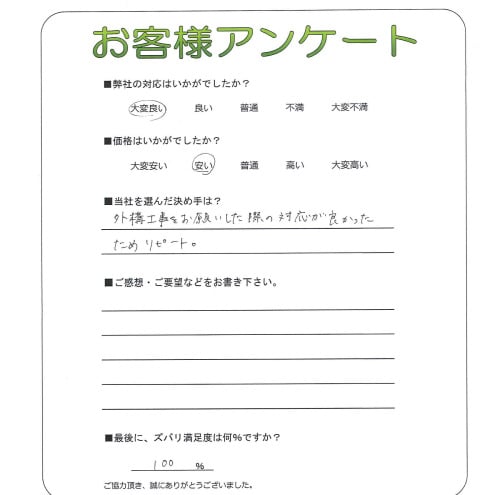 お客様アンケート
■弊社の対応はいかがでしたか？
大変良い 良い 普通 不満 大変不満
■価格はいかがでしたか？
大変安い 安い 普通 高い 大変高い
■当社を選んだ決め手は？
外構工事をお願いした際の対応が良かった
ためリピート。
■ご感想・ご要望などをお書き下さい。
■最後に、ズバリ満足度は何%ですか？
100 %
ご協力頂き、誠にありがとうございました。